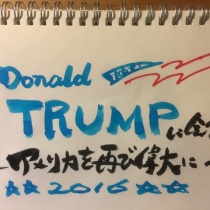 Donald
TRUMP
~アメリカを再び偉大に~
☆☆ 2016 ☆☆